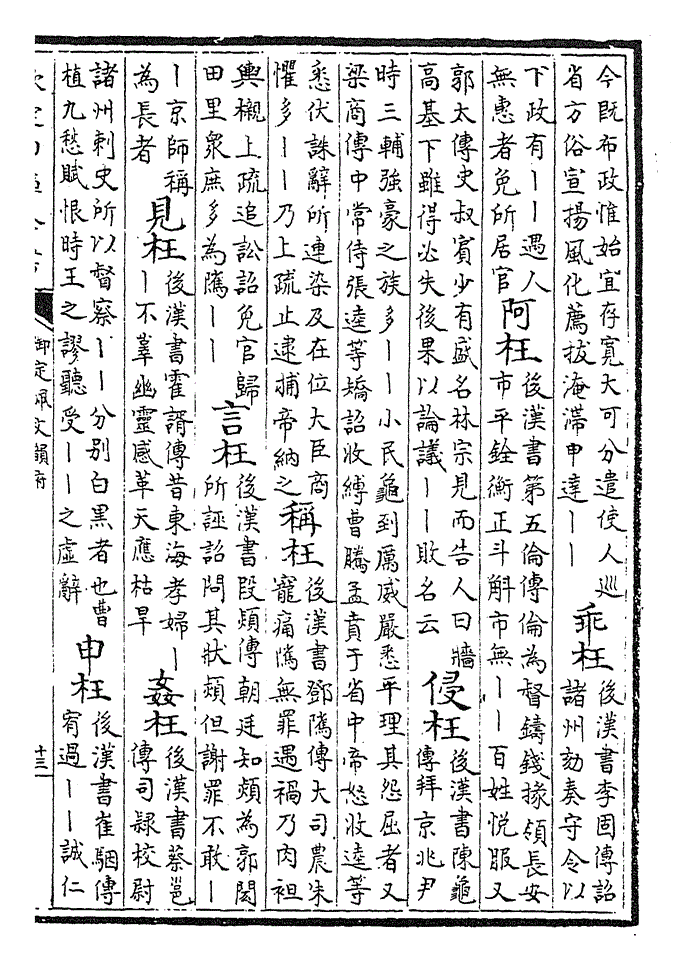 今既布政惟始宜存寬大可分遣使人巡
省方俗宣揚風化薦拔淹滯申達丨丨
乖枉
後漢書李固傳詔
諸州劾奏守令以
下政有丨丨遇人
無惠者免所居官
阿枉
後漢書第五倫傳倫為督鑄錢掾領長安
市平銓衡正斗斛市無丨丨百姓悅服又
郭太傳史叔賓少有盛名林宗見而告人曰牆
高基下雖得必失後果以論議丨丨敗名云
侵枉
後漢書陳龜
傳拜京兆尹
時三輔強豪之族多丨丨小民龜到厲威嚴悉平理其怨屈者又
梁商傳中常侍張逵等矯詔收縛曹騰孟賁于省中帝怒收逵等
悉伏誅辭所連染及在位大臣商
懼多丨丨乃上疏止逮捕帝納之
稱枉
後漢書鄧隲傳大司農朱
寵痛隲無罪遇禍乃肉袒
輿櫬上疏追訟詔免官歸
田里衆庶多為隲丨丨
言枉
後漢書段熲傳朝廷知熲為郭閎
所誣詔問其狀熲但謝罪不敢丨
丨京師稱
為長者
見枉
後漢書霍諝傳昔東海孝婦丨
丨不辜幽靈感革天應枯旱
姦枉
後漢書蔡邕
傳司隸校尉
諸州刺史所以督察丨丨分別白黑者也曹
植九愁賦恨時王之謬聽受丨丨之虛辭
申枉
後漢書崔駰傳
宥過丨丨誠仁
御定佩文韻府
十三